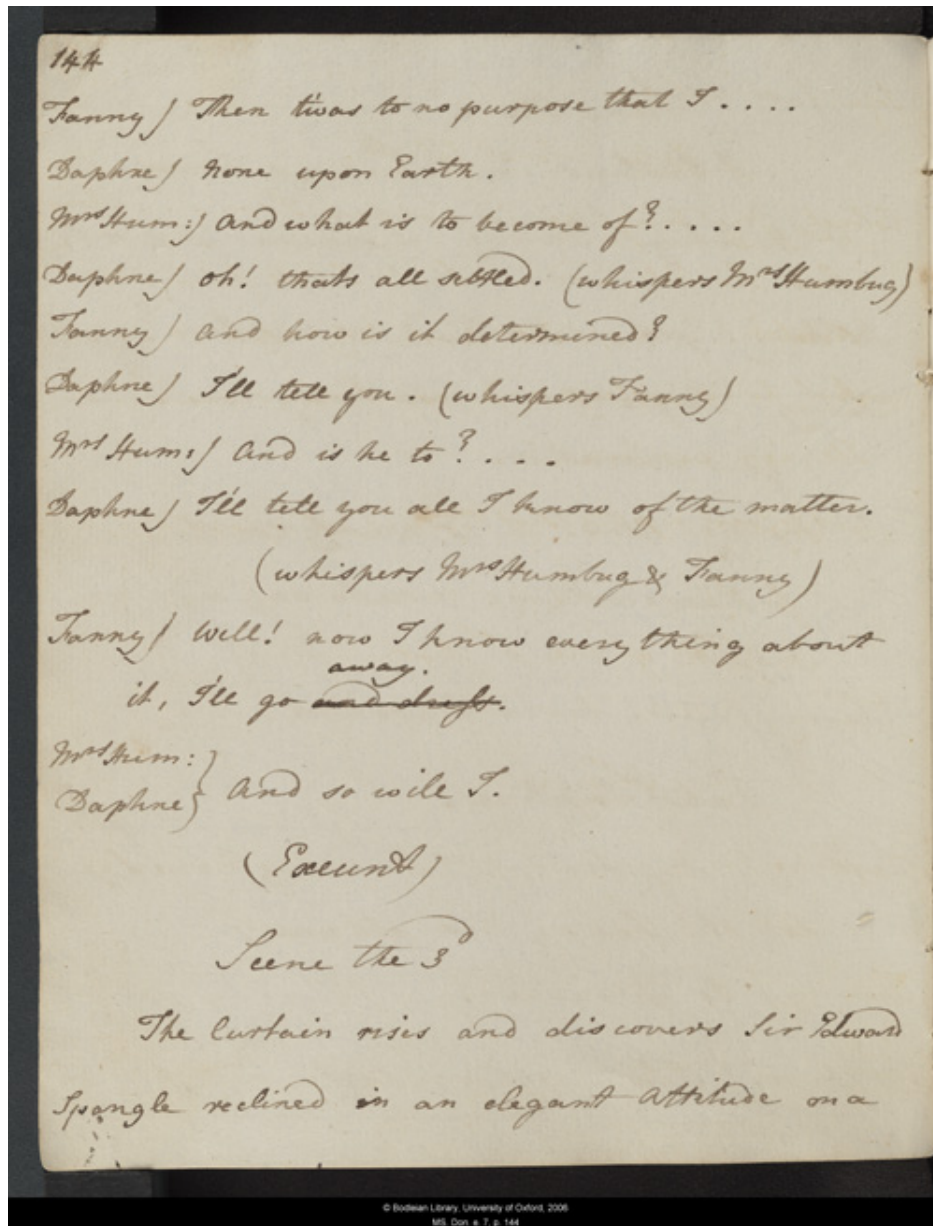 144
Fanny) Then t'was to no purpose that I . . . .
Daphne) None upon Earth.
Mrs Hum:) And what is to become of? . . . .
Daphne) oh! thats all settled. (whispers Mrs Humbug)
Fanny) and how is it determined?
Daphne) I'll tell you. (whispers Fanny)
Mrs Hum:) And is he to? . . . .
Daphne) I'll tell you all I know of the matter.
(whispers Mrs Humbug & Fanny)
Fanny) Well! now I know every thing about
away.
it, I'll go and dress.
Mrs Hum:}
Daphne} And so will I.
(Exeunt)
Scene the 3d
The Curtain rises and discovers Sir Edward
Spangle reclined in an elegant Attitude on a
© Bodleian Library, University of Oxford, 2006
MS. Don. e. 7, p. 144